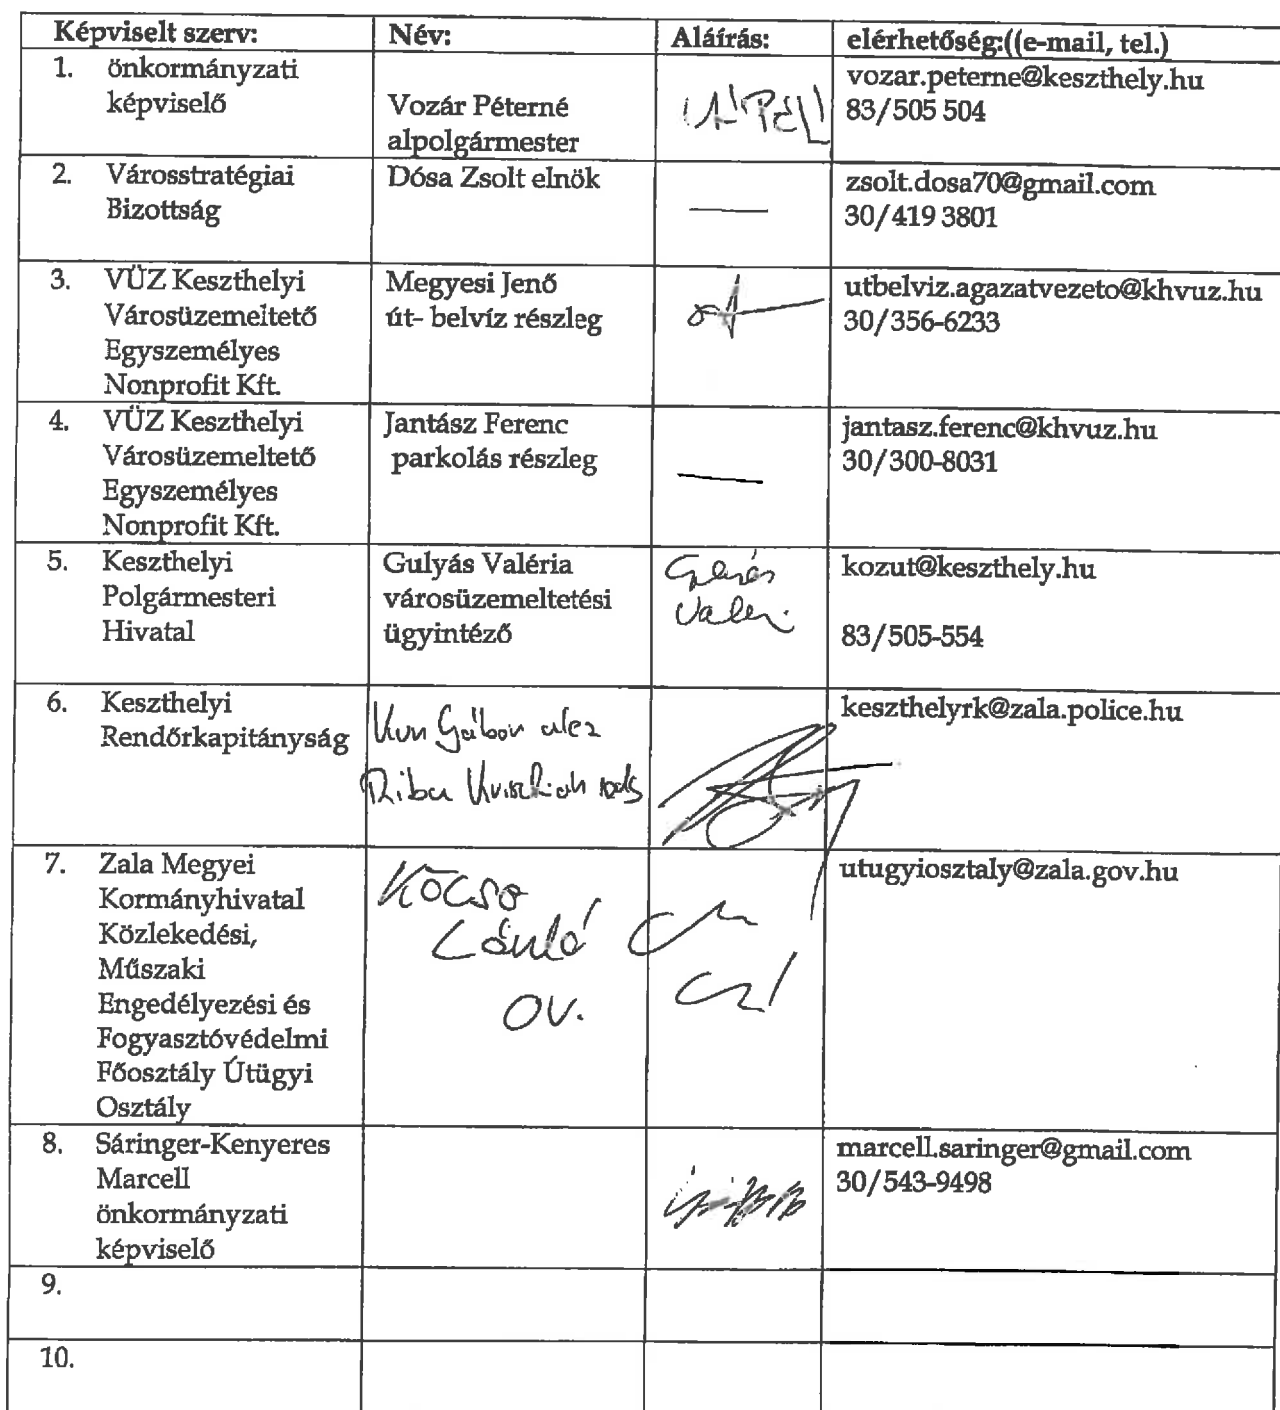 Képviselt szerv: Név: Aláírás: elérhetőség:((e-mail, tel.)
1. önkormányzati
képviselő
Vozár Péterné
alpolgármester
vozar.peterne@keszthely.hu
83/505 504
2. Városstratégiai
Bizottság
Dósa Zsolt elnök
zsolt.dosa70@gmail.com
30/419 3801
3. VÜZ Keszthelyi
Városüzemeltető
Egyszemélyes
Nonprofit Kft.
Megyesi Jenő
út- belvíz részleg
utbelviz.agazatvezeto@khvuz.hu
30/356-6233
4. VÜZ Keszthelyi
Városüzemeltető
Egyszemélyes
Nonprofit Kft.
Jantász Ferenc
parkolás részleg
jantasz.ferenc@khvuz.hu
30/300-8031
5. Keszthelyi
Polgármesteri
Hivatal
Gulyás Valéria
városüzemeltetési
ügyintéző
kozut@keszthely.hu
83/505-554
6. Keszthelyi
Rendőrkapitányság
Kun Gábor alez
keszthelyrk@zala.police.hu
7. Zala Megyei
Kormányhivatal
Közlekedési,
Műszaki
Engedélyezési és
Fogyasztóvédelmi
Főosztály Útügyi
Osztály
László
OV.
utugyiosztaly@zala.gov.hu
8. Sáringer-Kenyeres
Marcell
önkormányzati
képviselő
marcell.saringer@gmail.com
30/543-9498
9.
10.